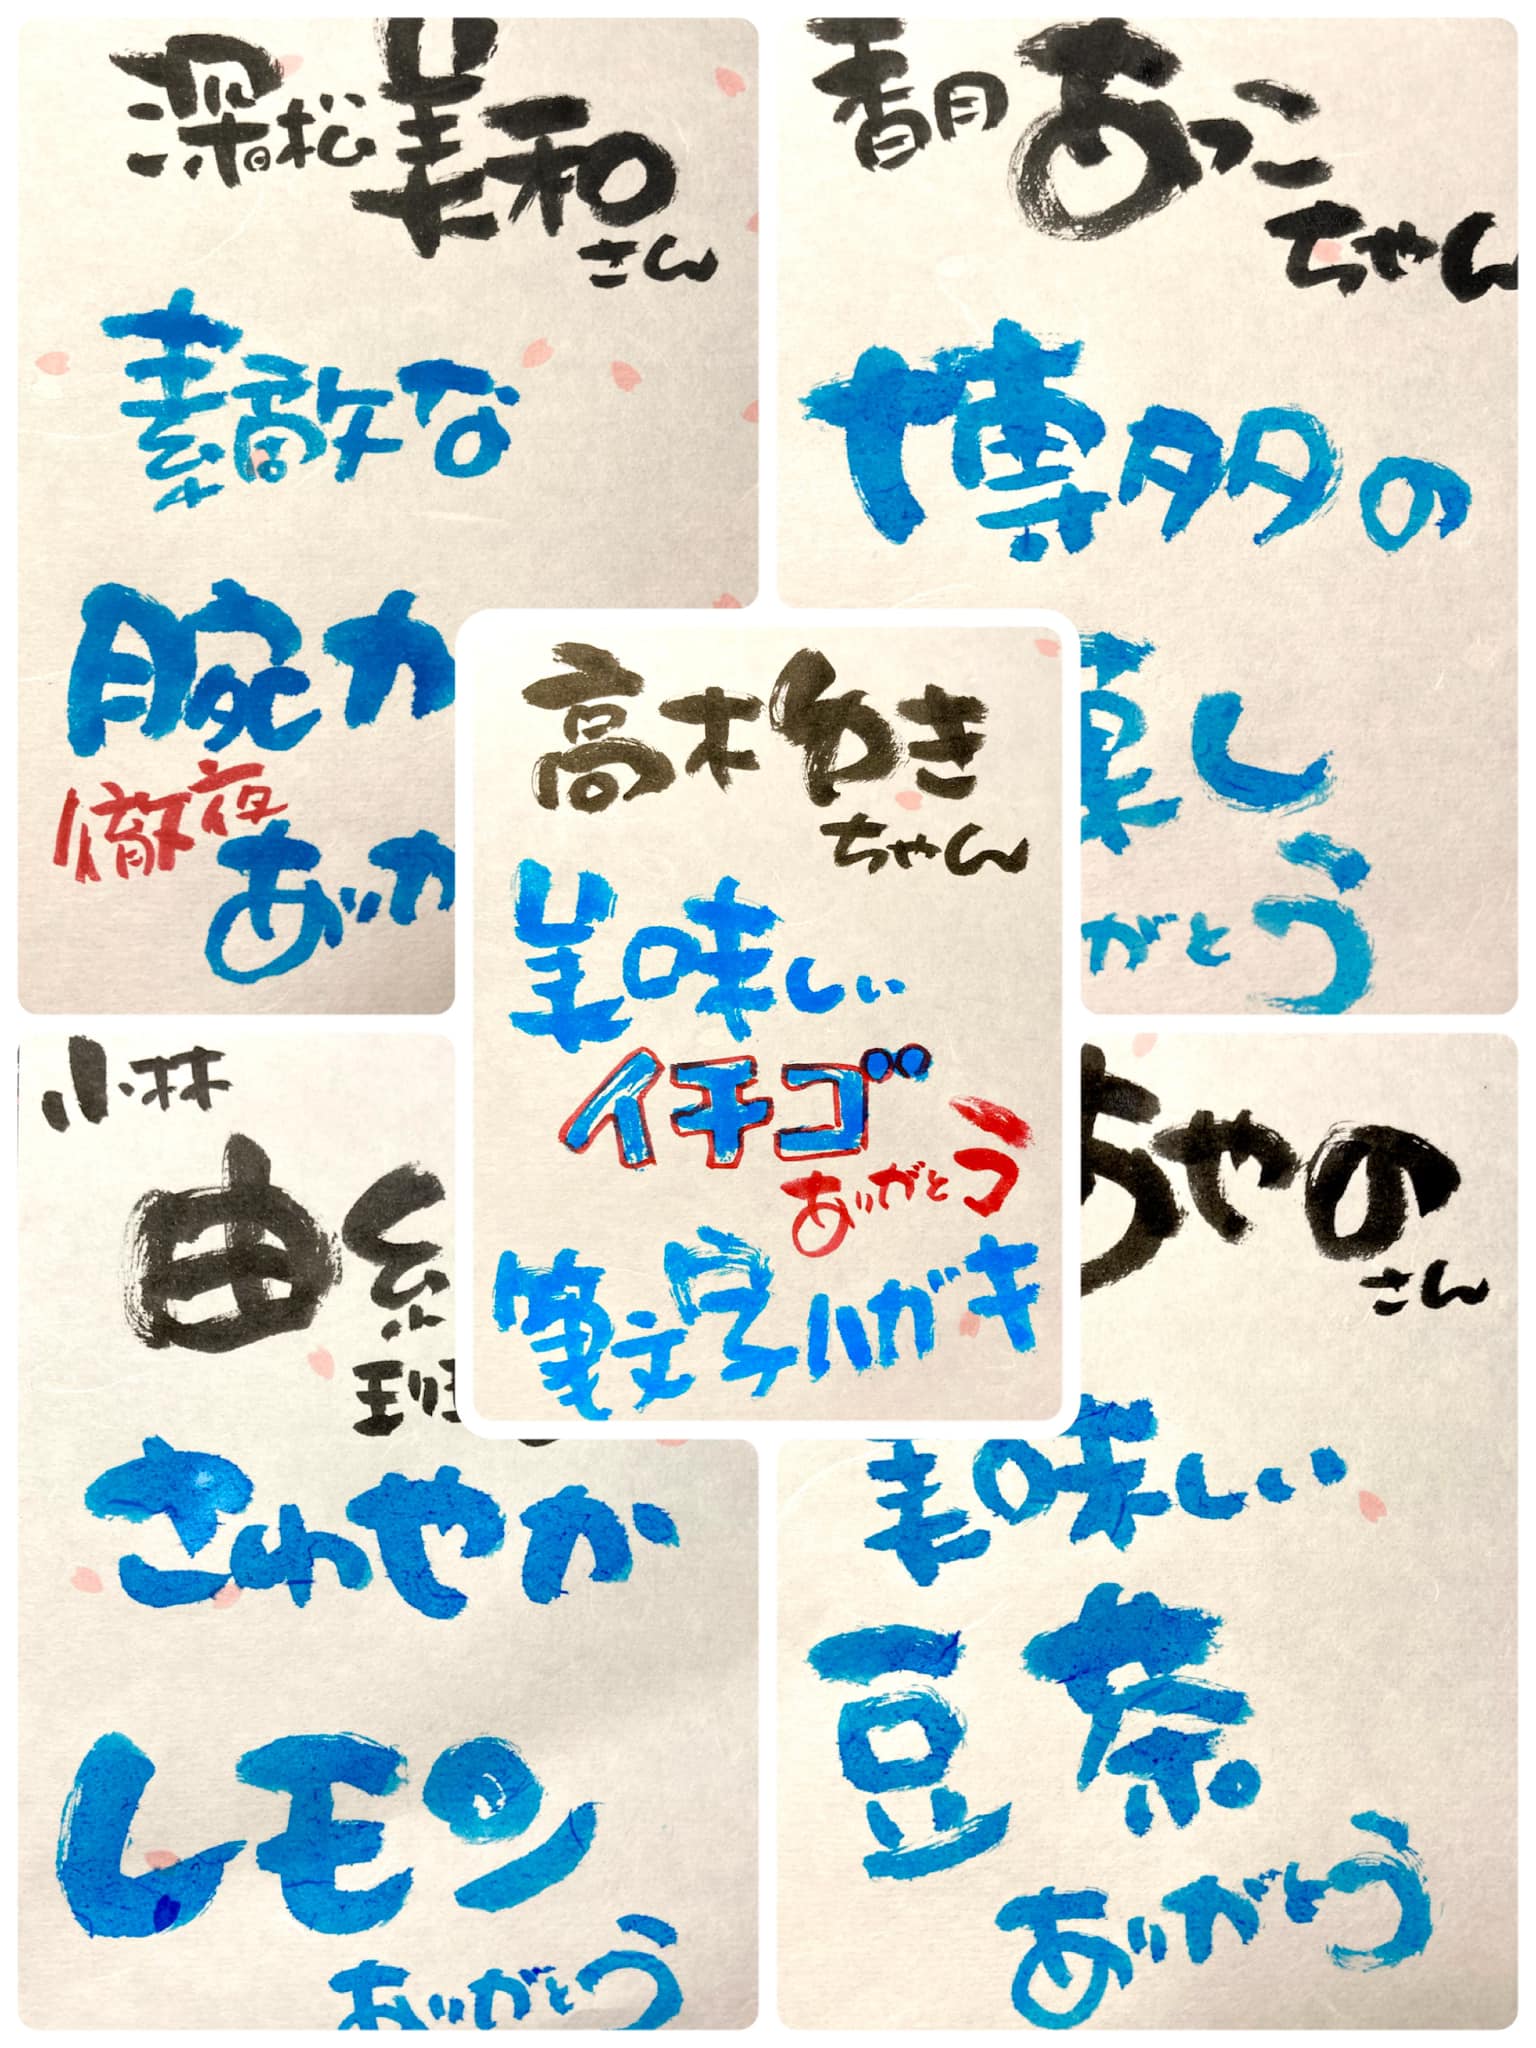 深松美和
さん
素敵な
腕力
徹夜
ありが
香月あっこ
ちゃん
博多の
菓し
がとう
高木ゆき
ちゃん
美味しい
イチゴ
ありがとう
筆文字ハガキ
小林
由糸
班
さわやか
レモン
ありがとう
あやの
さん
美味しい
豆奈
ありがとう